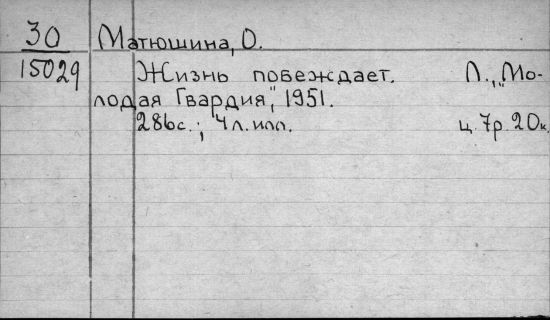 30 Матюшина, О.
15029 Жизнь побеждает. Л., "Мо-
лодая Гвардия", 1951.
286с.; 4 л. илл. ц. 7р. 20к.